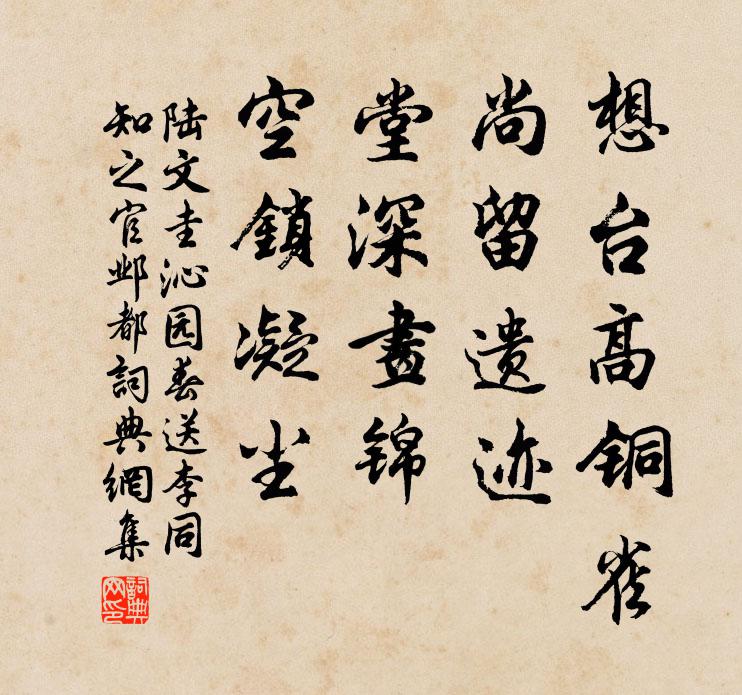 想台高铜雀
尚留遗迹
堂深畫锦
空鎖凝尘
陆文圭沁园春送李同
知之官邺都詞典網集
詞典網印